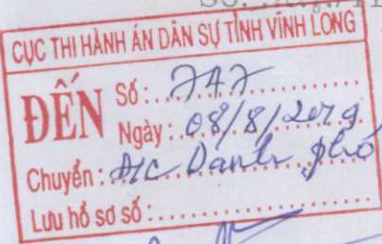 CỤC THI HÀNH ÁN DÂN SỰ TỈNH VĨNH LONG
ĐẾN
Số: 747
Ngày: 08/8/2019
Chuyển: A/C Danh, phó
Lưu hồ sơ số: